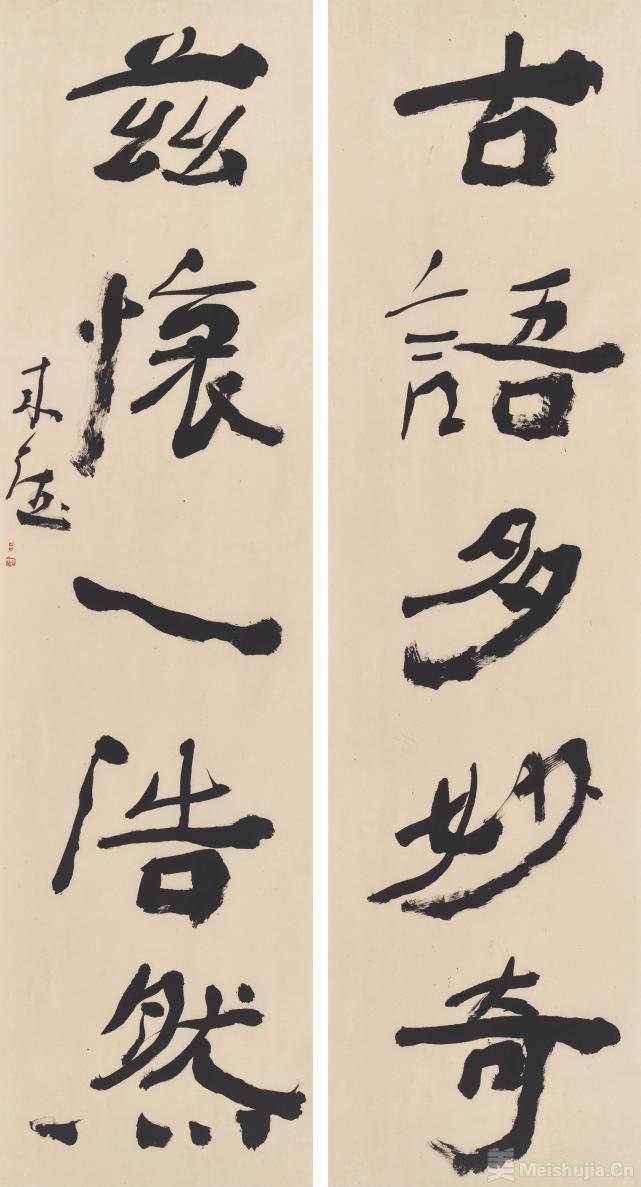 古語多妙奇
茲懷一浩然
美 Meishujia.Cn